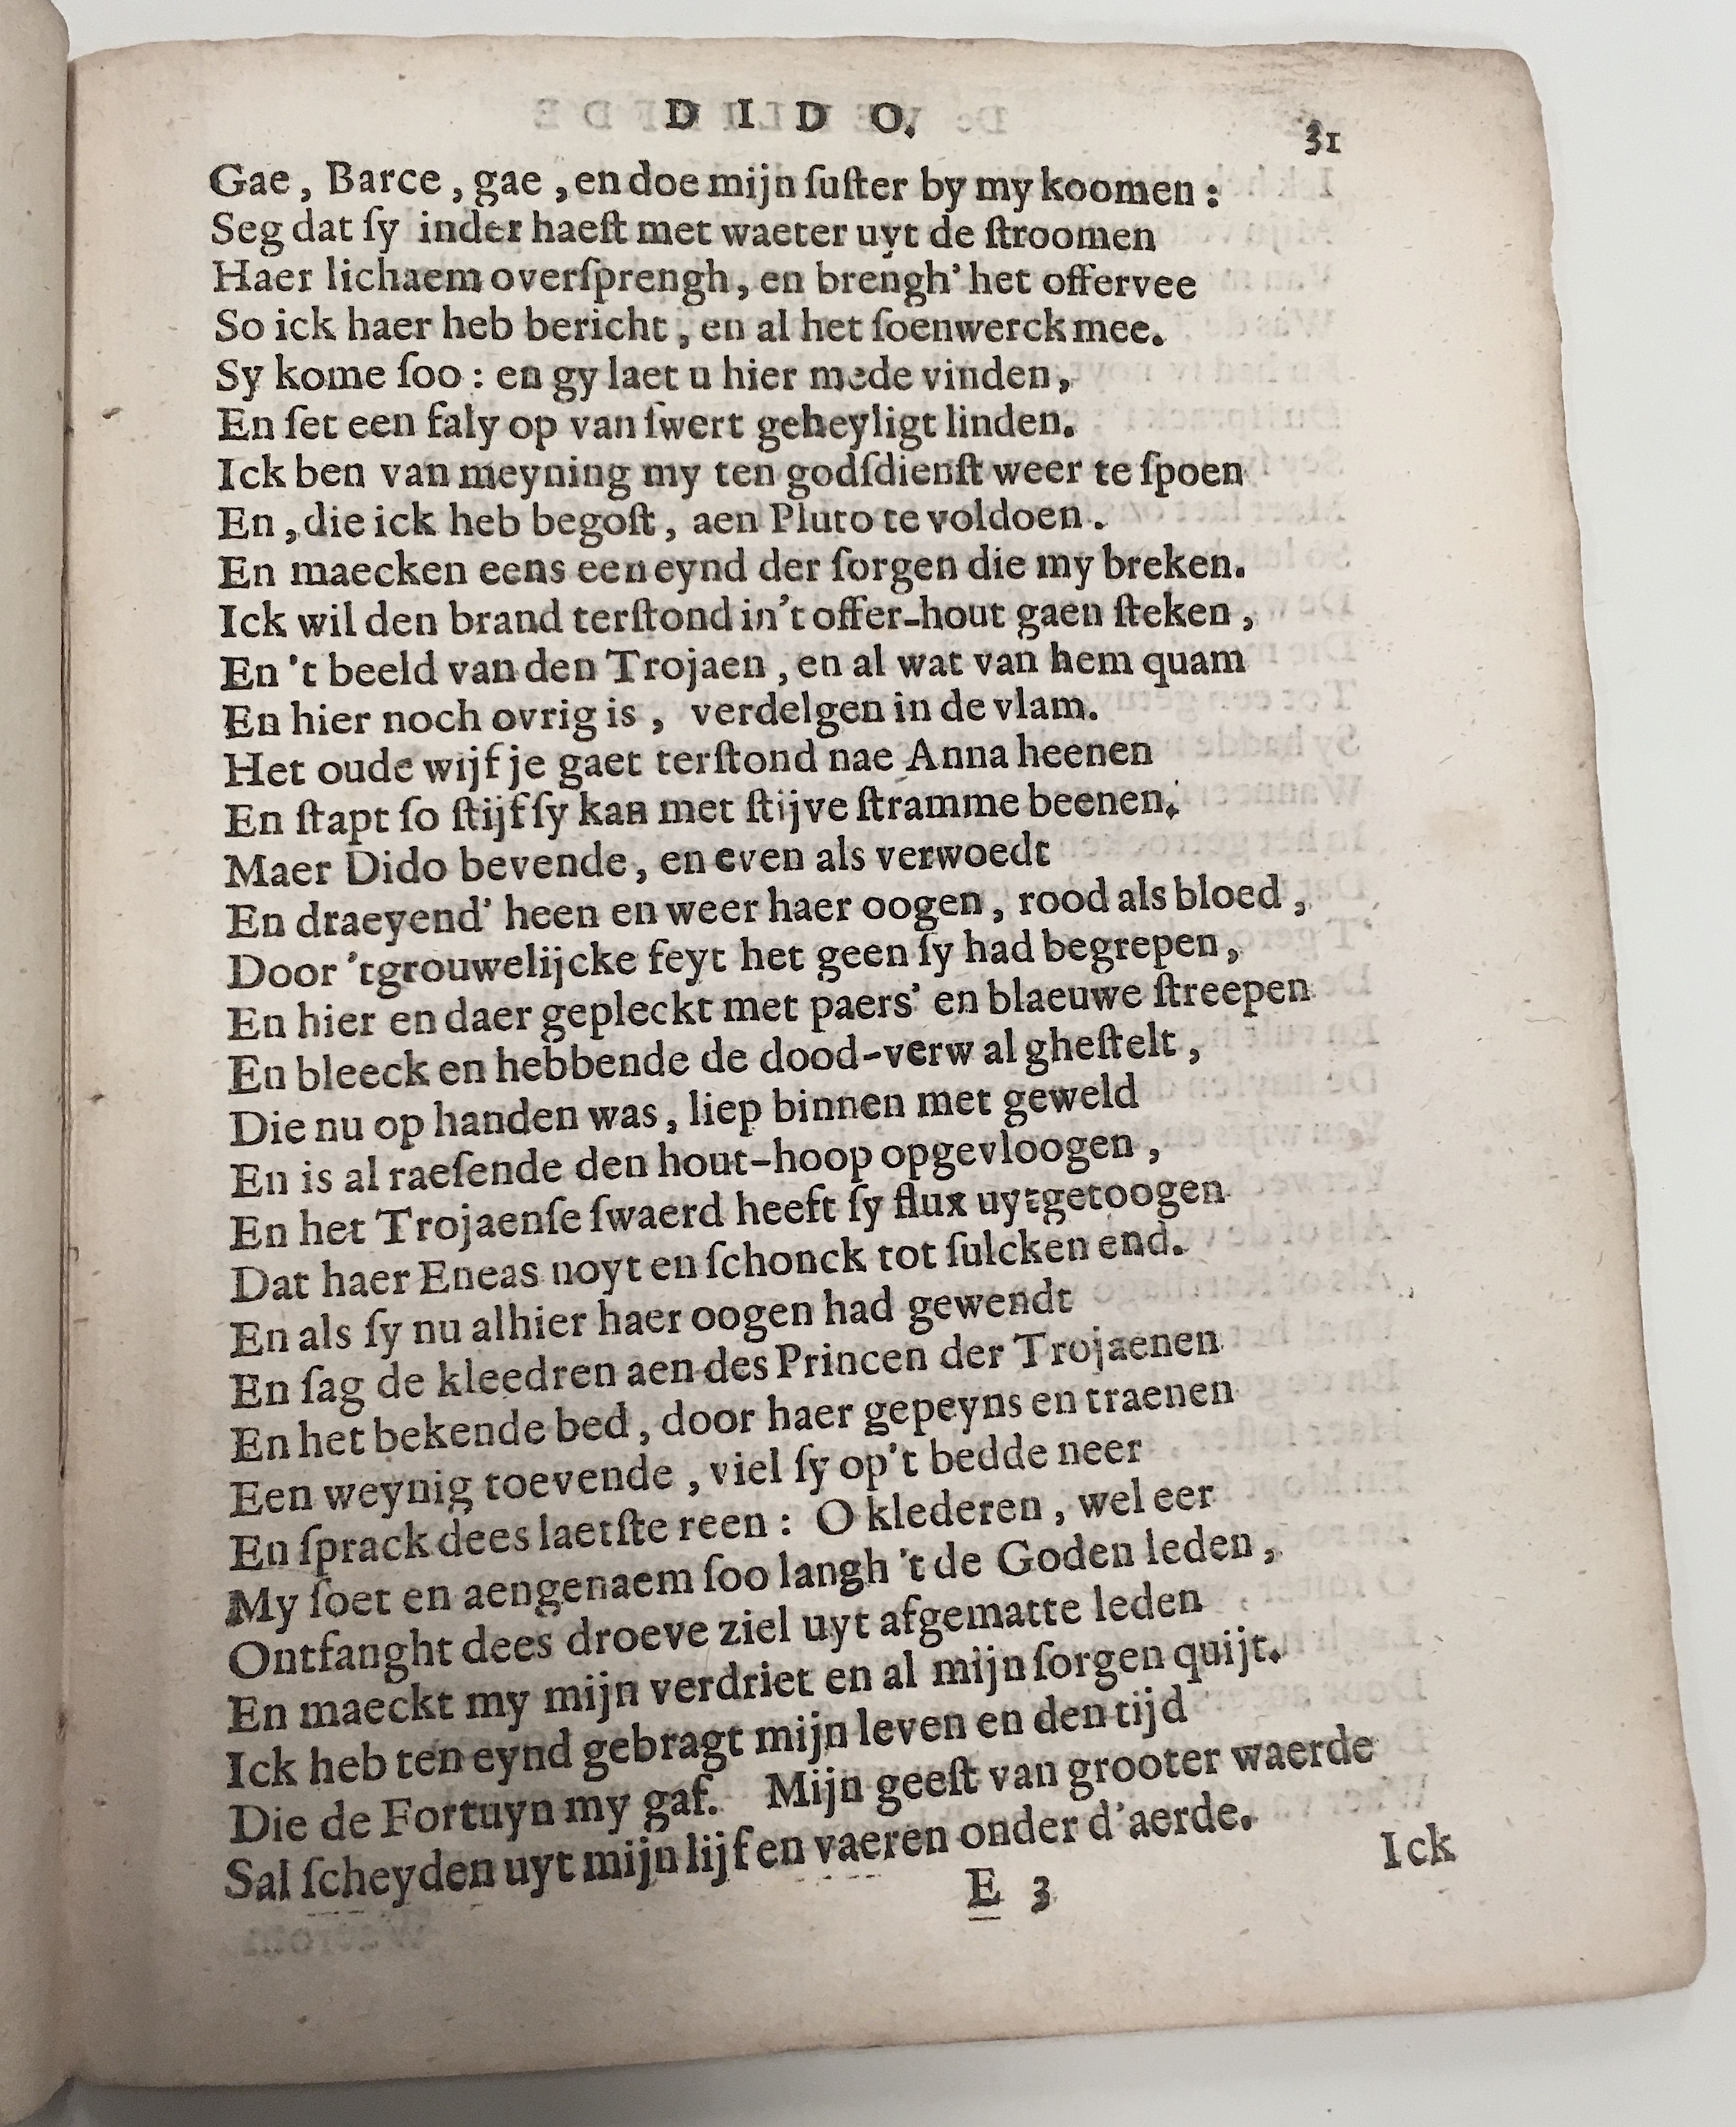 D I D O.
31
Gae, Barce, gae, en doe mijn ſuſter by my koomen:
Seg dat ſy inder haeſt met waeter uyt de ſtroomen
Haer lichaem overſprengh, en brengh' het offervee
So ick haer heb bericht, en al het ſoenwerck mee.
Sy kome ſoo: en gy laet u hier mede vinden,
En ſet een faly op van ſwert geheyligt linden.
Ick ben van meyning my ten godſdienſt weer te ſpoen
En, die ick heb begoſt, aen Pluto te voldoen.
En maecken eens een eynd der ſorgen die my breken.
Ick wil den brand terſtond in't offer-hout gaen ſteken,
En 't beeld van den Trojaen, en al wat van hem quam
En hier noch ovrig is, verdelgen in de vlam.
Het oude wijfje gaet terſtond nae Anna heenen
En ſtapt ſo ſtijf ſy kan met ſtijve ſtramme beenen.
Maer Dido bevende, en even als verwoedt
En draeyend' heen en weer haer oogen, rood als bloed,
Door 'tgrouwelijcke feyt het geen ſy had begrepen,
En hier en daer gepleckt met paers' en blaeuwe ſtreepen
En bleeck en hebbende de dood-verw al gheſtelt,
Die nu op handen was, liep binnen met geweld
En is al raeſende den hout-hoop opgevloogen,
En het Trojaenſe ſwaerd heeft ſy flux uytgetoogen
Dat haer Eneas noyt en ſchonck tot ſulcken end.
En als ſy nu alhier haer oogen had gewendt
En ſag de kleedren aen des Princen der Trojaenen
En het bekende bed, door haer gepeyns en traenen
Een weynig toevende, viel ſy op't bedde neer
En ſprack dees laetſte reen: O klederen, wel eer
My ſoet en aengenaem ſoo langh 't de Goden leden,
Ontfanght dees droeve ziel uyt afgematte leden
En maeckt my mijn verdriet en al mijn ſorgen quijt.
Ick heb ten eynd gebragt mijn leven en den tijd
Die de Fortuyn my gaf. Mijn geeſt van grooter waerde
Sal ſcheyden uyt mijn lijf en vaeren onder d'aerde.
E 3
Ick